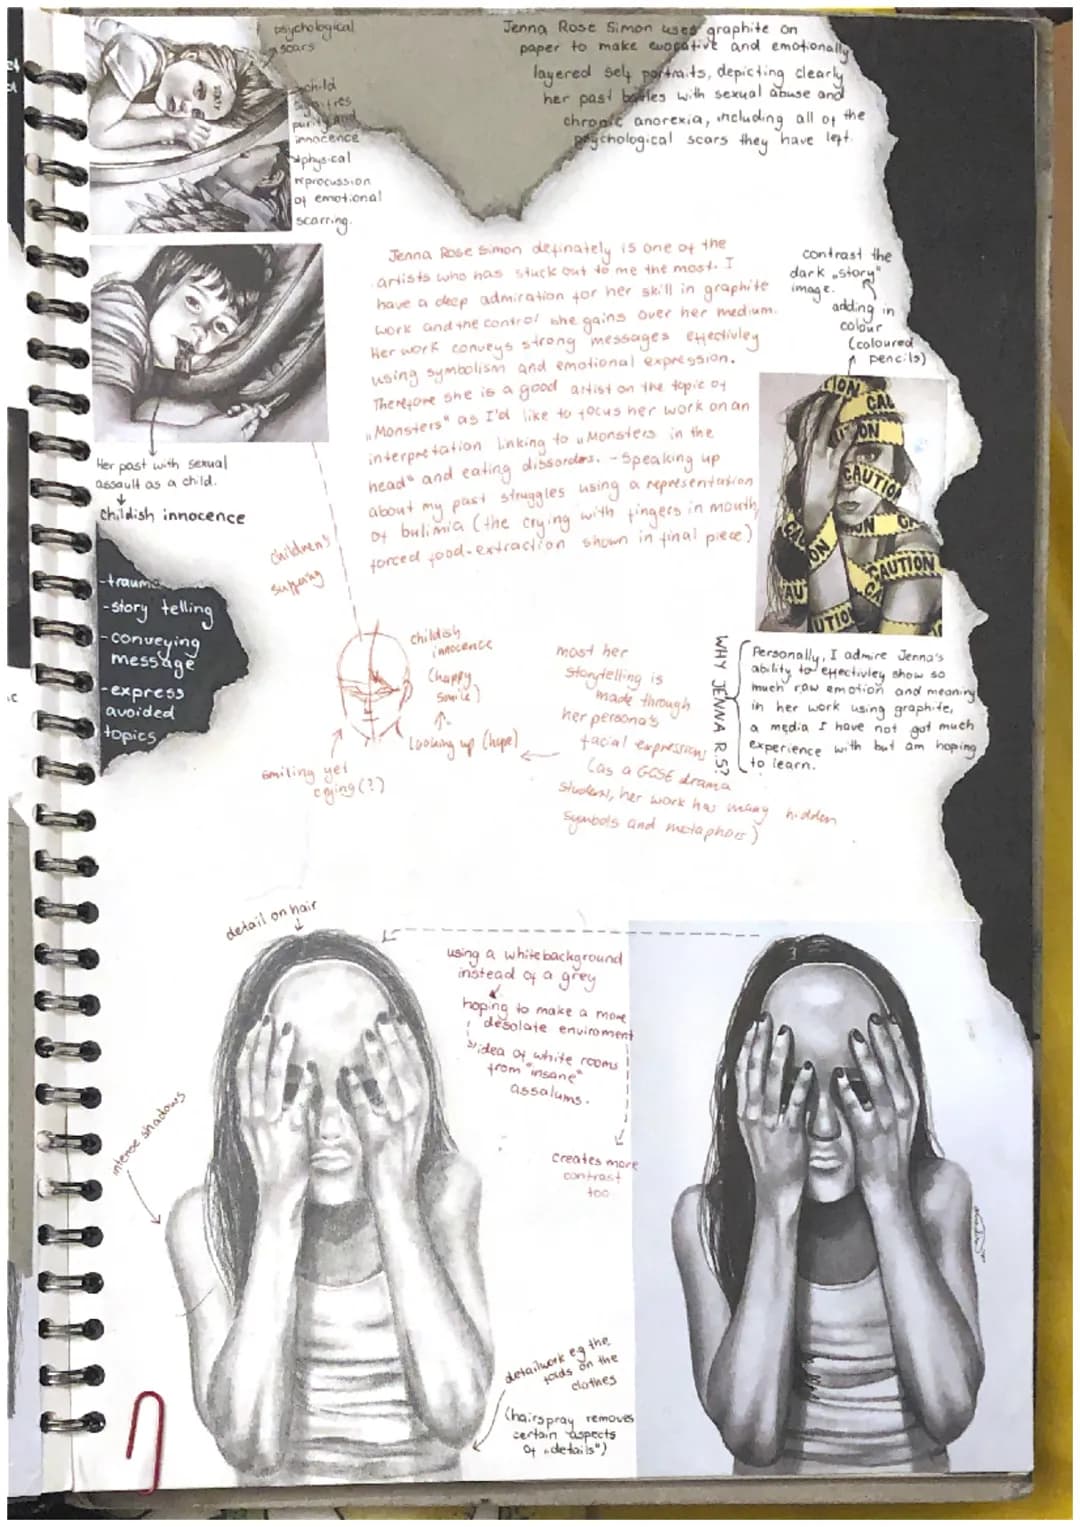 psychological
scars
child
signifies
purity and
innocence
physical
reprocussion
of emotional
scarring.
Jenna Rose Simon uses graphite on
paper to make evocative and emotionally
layered self portraits, depicting clearly
her past battles with sexual abuse and
chronic anorexia, including all of the
psychological scars they have left.
Jenna Rose Simon definately is one of the
artists who has stuck out to me the most. I
have a deep admiration for her skill in graphite
work and the control she gains over her medium.
Her work conveys strong messages effectivley
using symbolism and emotional expression.
Therefore she is a good artist on the topic of
„Monsters" as I'd like to focus her work on an
interpretation linking to „Monsters in the
head" and eating dissorders. - Speaking up
about my past struggles using a representation
of bulimia (the crying with fingers in mouth,
forced food-extraction shown in final piece)
contrast the
dark „story"
image.
adding in
colour
(coloured
pencils)
TION
CAU
UTION
CAUTION
ION
CAUTION
CAU
UTION
Her past with sexual
assault as a child.
childish innocence
-trauma
-story telling
-conveying
message
-express
avoided
topics
children's
childish
innocence
(happy
smile)
Looking up (hope)
smiling yet
crying (?)
most her
storytelling is
made through
her persona's
facial expressions
(as a GCSE drama
student, her work has many hidden
symbols and metaphors)
WHY JENNA R.S?
Personally, I admire Jenna's
ability to effectivley show so
much raw emotion and meaning
in her work using graphite,
a media I have not got much
experience with but am hoping
to learn.
detail on hair
using a white background
instead of a grey
hoping to make a more
desolate enviroment
idea of white rooms
from "insane"
assalums.
creates more
contrast
too
intense shadows
detailwork e.g the
folds on the
clothes
(hairspray removes
certain aspects
of „details")